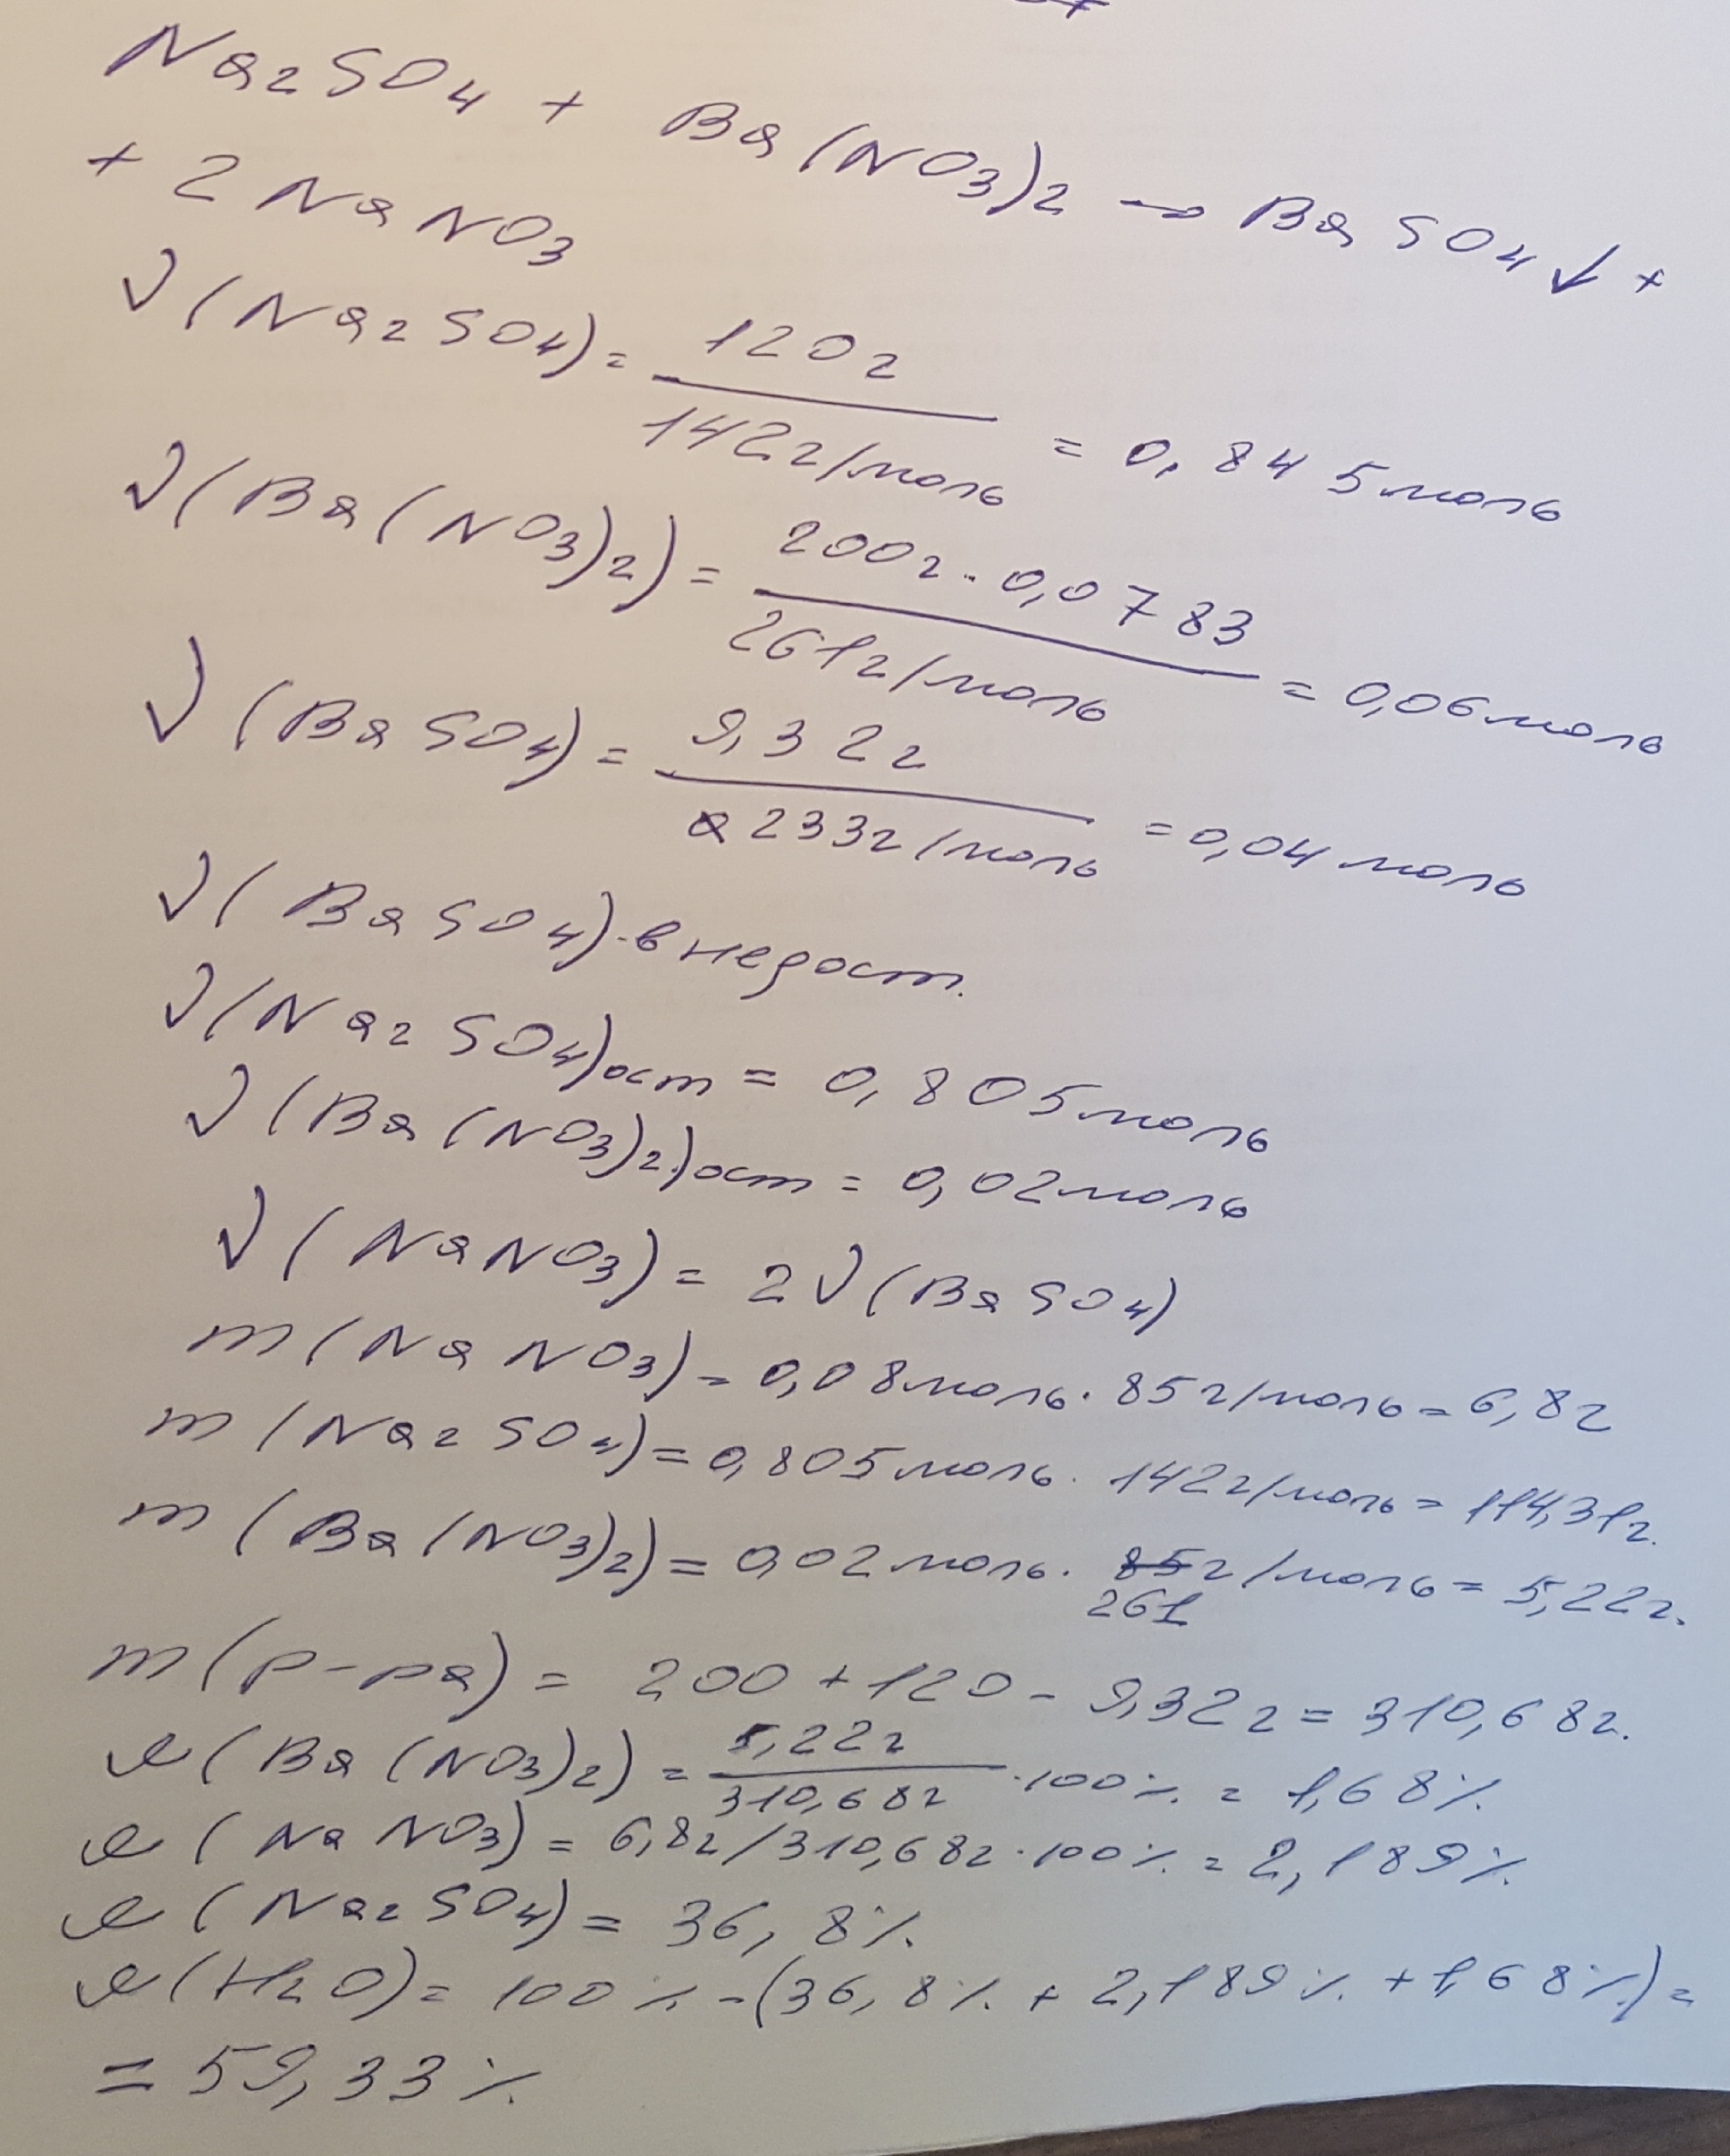 Na2SO4 + Ba(NO3)2 → BaSO4↓ +
+ 2NaNO3
ν(Na2SO4) = 120г / 142г/моль = 0,845моль
ν(Ba(NO3)2) = 200г · 0,0783 / 261г/моль = 0,06моль
ν(BaSO4) = 9,32г / 233г/моль = 0,04моль
ν(BaSO4) - в недост.
ν(Na2SO4)ост = 0,805моль
ν(Ba(NO3)2)ост = 0,02моль
ν(NaNO3) = 2ν(BaSO4)
m(NaNO3) = 0,08моль · 85г/моль = 6,8г
m(Na2SO4) = 0,805моль · 142г/моль = 114,31г.
m(Ba(NO3)2) = 0,02моль · 85г/моль = 5,22г.
261
m(р-ра) = 200 + 120 - 9,32г = 310,68г.
ω(Ba(NO3)2) = 5,22г / 310,68г · 100% = 1,68%
ω(NaNO3) = 6,8г/310,68г · 100% = 2,189%
ω(Na2SO4) = 36,8%
ω(H2O) = 100% - (36,8% + 2,189% + 1,68%) =
= 59,33%